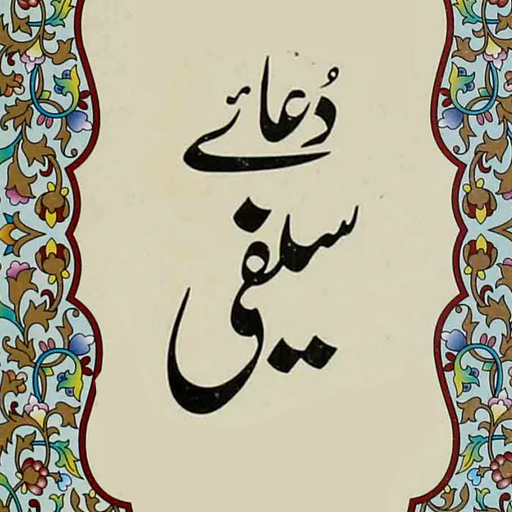 دُعائے
سیفی